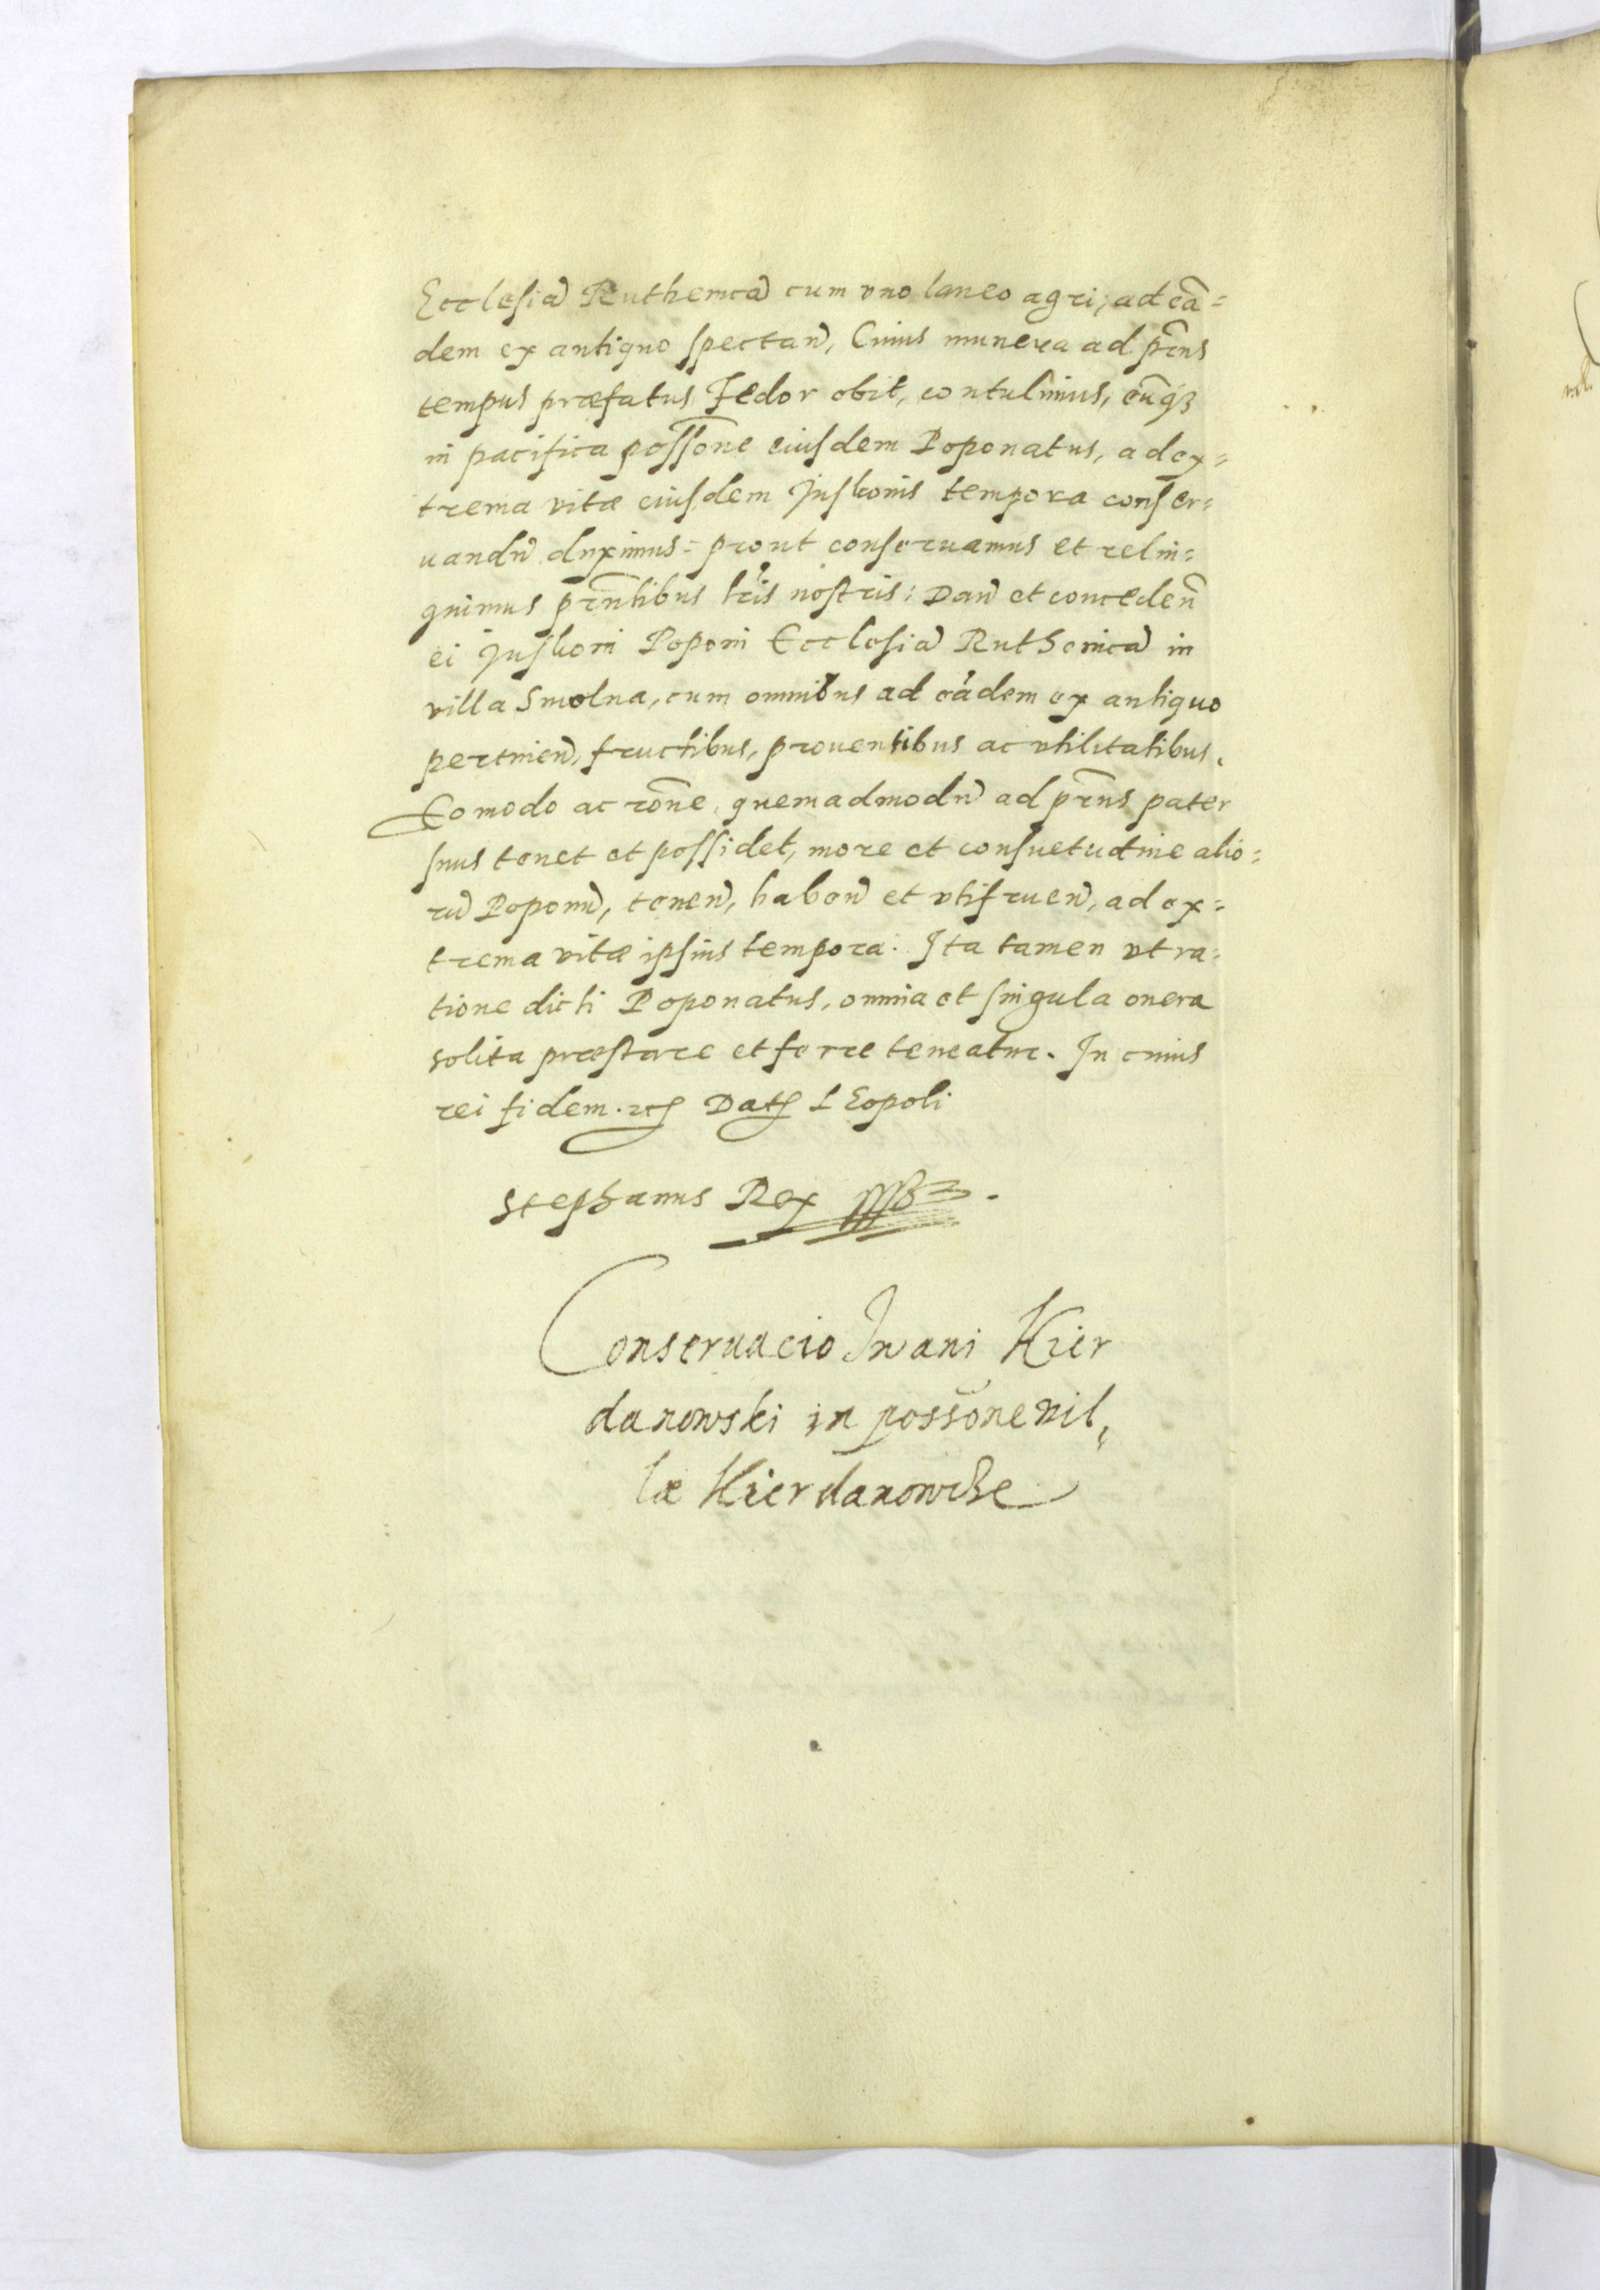 Ecclesiã Ruthenicã cum vno laneo agri, ad eã=
dem ex antiquo spectañ, Cuius munera ad prñs
tempus præfatus Fedor obit, contulimus, eũq3
in pacifica possõne eiusdem Poponatus, ad ex=
trema vitæ eiusdem Juskonis tempora conser=
uandũ duximus: prout conseruamus et relin=
quimus prñtibus lr̃is nostris: Dañ et conceden̄
ei Juskoni Poponi Ecclesiã Ruthenicã in
villa Smolna, cum omnibus ad eãdem ex antiquo
pertineñ, fructibus, prouentibus ac vtilitatibus.
Eo modo ac rõne, quemadmodũ ad prñs pater
suus tenet et possidet, more et consuetudine alio=
rũ Poponũ, teneñ, habeñ et vtifrueñ, ad ex=
trema vitæ ipsius tempora. Ita tamen vt ra=
tione dicti Poponatus, omnia et singula onera
solita præstare et ferre teneatur. In cuius
rei fidem. etc Dat LEopoli
Stephanus Rex
Conseruacio Iwani Hier
danowski in possõne vil,
læ Hierdanowche